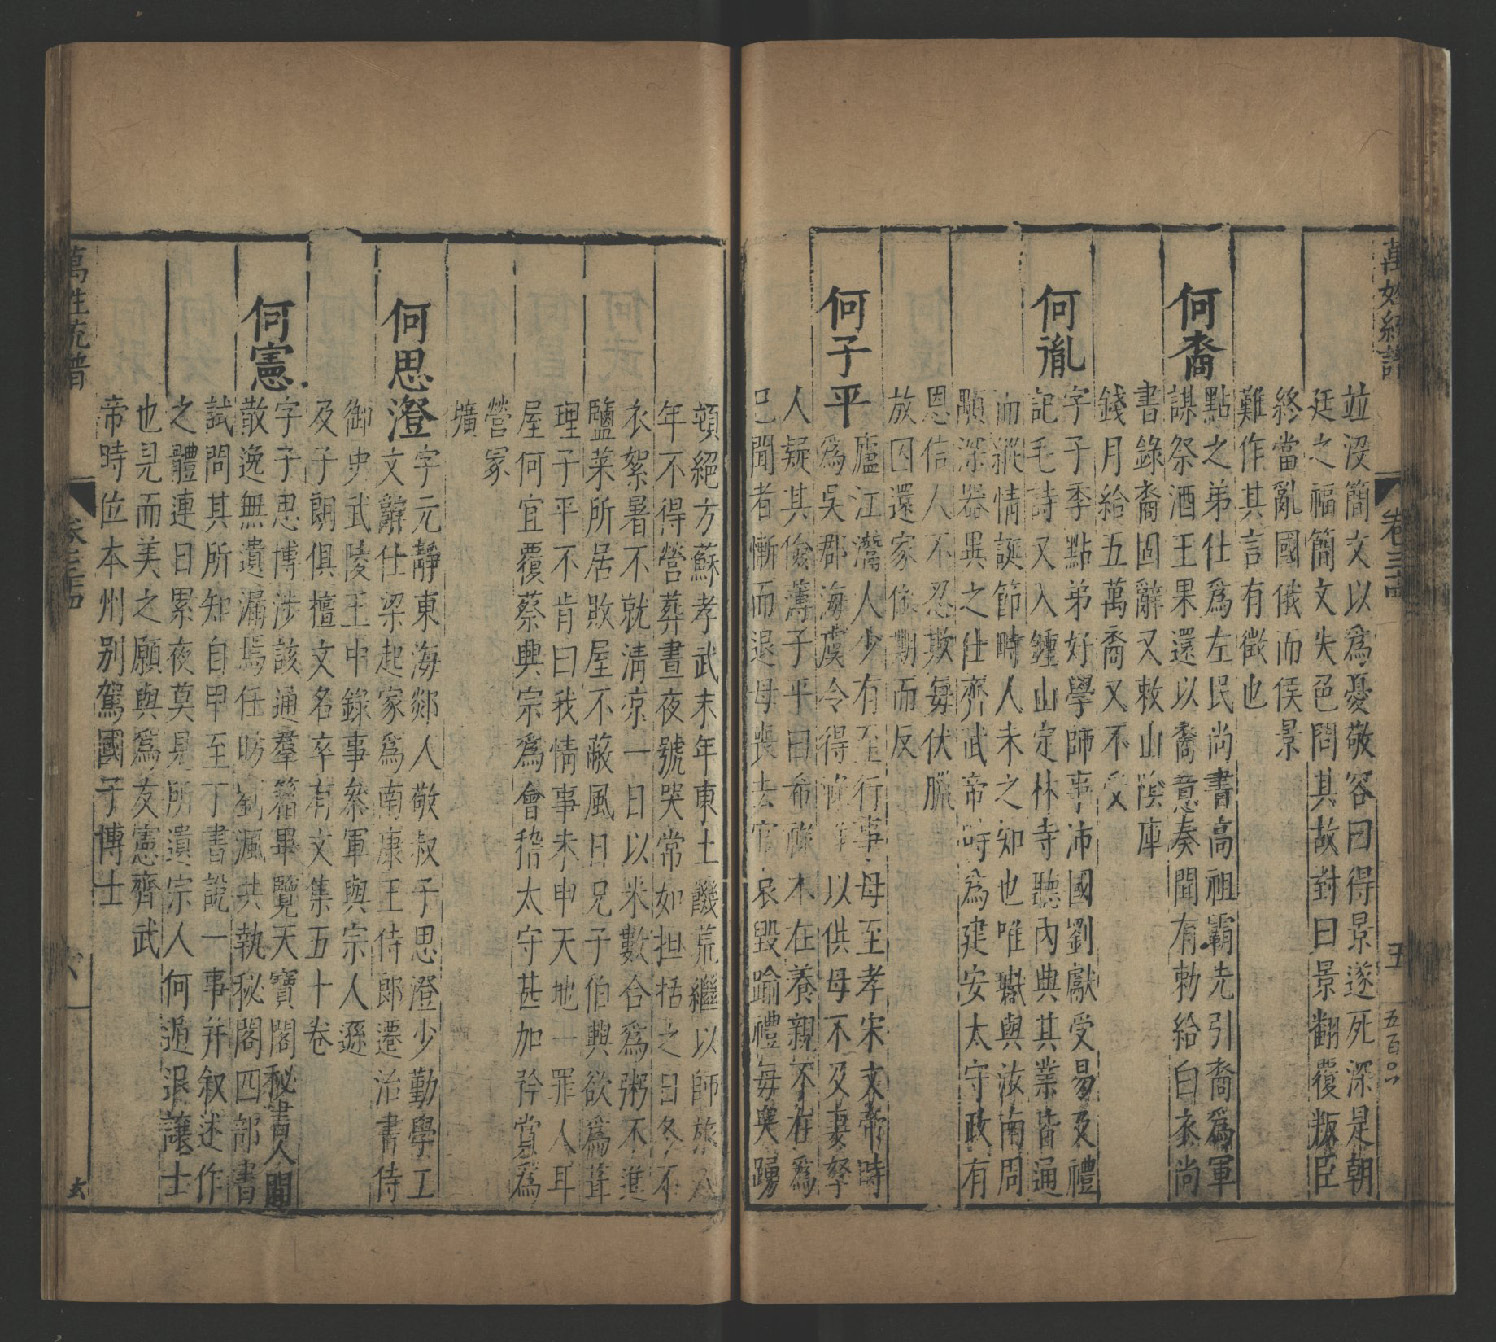 萬姓統譜
卷三十四
五
五百六
並没簡文以為憂敬容曰得景遂死深是朝
廷之福簡文失色問其故對曰景翻覆叛臣
終當亂國俄而侯景
難作其言有徵也
何裔
點之弟仕為左民尚書高祖霸先引裔為軍
謀祭酒王果還以裔意奏聞有勅給白衣尚
書錄裔固辭又敕山陰庫
錢月給五萬裔又不受
何胤
字子季點弟好學師事沛國劉獻受易及禮
記毛詩又入鍾山定林寺聽內典其業皆通
而縱情誕節時人未之知也唯瓛與汝南周
顒深器異之仕齊武帝時為建安太守政有
恩信人不忍欺每伏臘
放囚還家依期而反
何子平
廬江灊人少有至行事母至孝宋文帝時
為吳郡海虞令得 以供母不及妻孥
人疑其儉薄子平曰希祿本在養親不在為
己聞者慚而退母喪去官哀毀踰禮每哭踴
頓絕方蘇孝武末年東土饑荒繼以師旅八
年不得營葬晝夜號哭常如袒括之日冬不
衣絮暑不就清凉一日以米數合為粥不進
鹽菜所居敗屋不蔽風日兄子伯興欲為葺
理子平不肯曰我情事未申天地一罪人耳
屋何宜覆蔡興宗為會稽太守甚加矜賞為
營冢
壙
何思澄
字元靜東海郯人敬叔子思澄少勤學工
文辭仕梁起家為南康王侍郎遷治書侍
御史武陵王中錄事叅軍與宗人遜
及子朗俱擅文名卒有文集五十卷
何憲
字子思博涉該通羣籍畢覽天寶閣秘書人間
散逸無遺漏焉任昉劉渢共執秘閣四部書
試問其所知自甲至丁書說一事并叙述作
之體連日累夜莫見所遺宗人何遁退讓士
也見而美之願與為友憲齊武
帝時位本州別駕國子博士
萬姓統譜
卷三十四
六